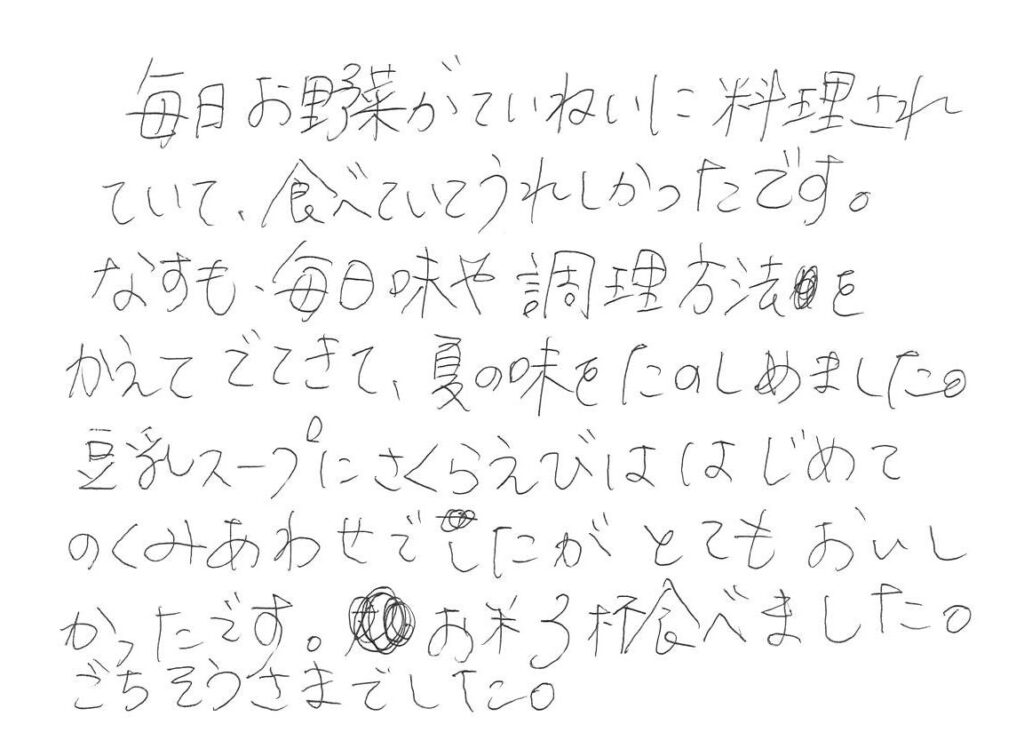 毎日お野菜がていねいに料理され
ていて、食べていてうれしかったです。
なすも、毎日味や調理方法を
かえてでてきて、夏の味をたのしめました。
豆乳スープにさくらえびははじめて
のくみあわせでしたがとてもおいし
かったです。お米3杯食べました。
ごちそうさまでした。